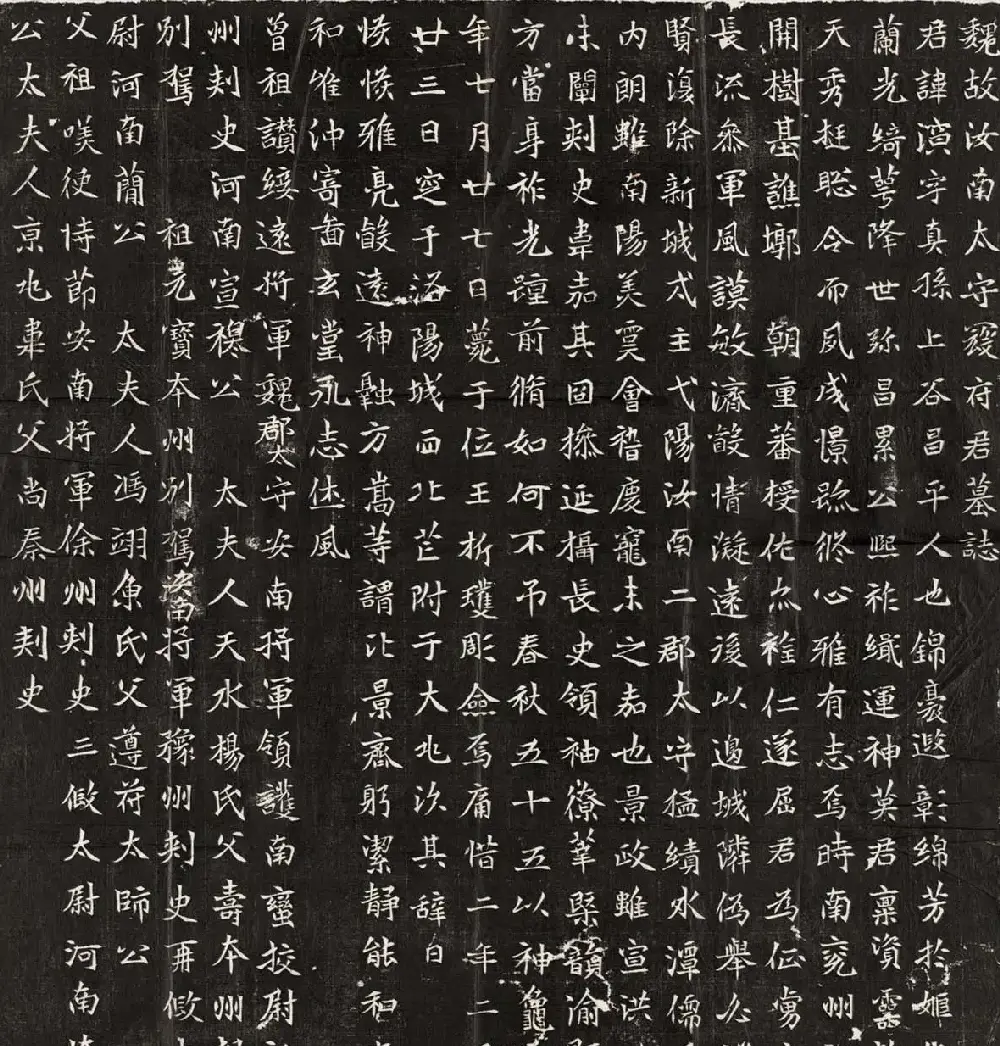 魏故汝南太守寇府君墓誌
君諱演字真孫上谷昌平人也錦裊遐彰綿芳於姬
蘭光綺萼降世弥昌累公熙祚織運神英君稟資靈
天秀挺聡令而夙成憬跡終心雅有志焉時南兖州
開樹基譙墎 朝重蕃授佐簡仁遂屈君為征虜
長流參軍風謨敏濟㲉情凝遠後以邊城隣偽舉必
賢復除新城戍主弋陽汝南二郡太守猛績水潭儒
内朗雖南陽美㝠會稽慶寵未之嘉也景政雖宣洪
味闡刾史韋嘉其固操延攝長史領袖僚菫槩韻渝
方當身祚光踵前脩如何不弔春秋五十五以神龜
年七月廿七日薨于位玉折瓊彫僉焉痛惜二年二
廿三日窆于洛陽城西北芒附于大兆次其辭曰
惔惔雅亮㲉遠神融方嵩等謂比景齊躬潔靜能和
和唯沖寄啚玄堂永志休風
曾祖讃綏遠將軍魏郡太守安南將軍領護南蠻挍尉
州刾史河南宣穆公 太夫人天水楊氏父壽本州
別駕 祖元寳本州別駕安南將軍豫州刾史再假
尉河南蕳公 太夫人馮翊魚氏父遵苻太師公
父祖嘆使恃節安南將軍徐州刾史三假太尉河南
公太夫人京兆韋氏父尚秦州刾史